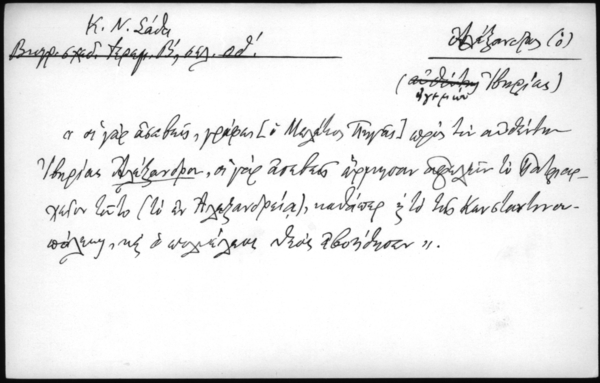 Κ. Ν. Σάθα
Βιογρ. σχεδ. Πατρ. Β', σελ. οθ'.
Ἀλέξανδρος (ὁ)
(αὐθέντης Ἰβηρίας)
ἡγεμών
« οἱ γὰρ ἀσεβεῖς, γράφει [ὁ Μελέτιος Πηγᾶς] πρὸς τὸν αὐθέντην
Ἰβηρίας Ἀλέξανδρον, οἱ γὰρ ἀσεβεῖς ὥρμησαν ἀφελεῖν τὸ Πατριαρ-
χεῖον τοῦτο (τὸ ἐν Ἀλεξανδρείᾳ), καθάπερ καὶ τὸ τῆς Κωνσταντινου-
πόλεως, καὶ ὁ Θεὸς ».